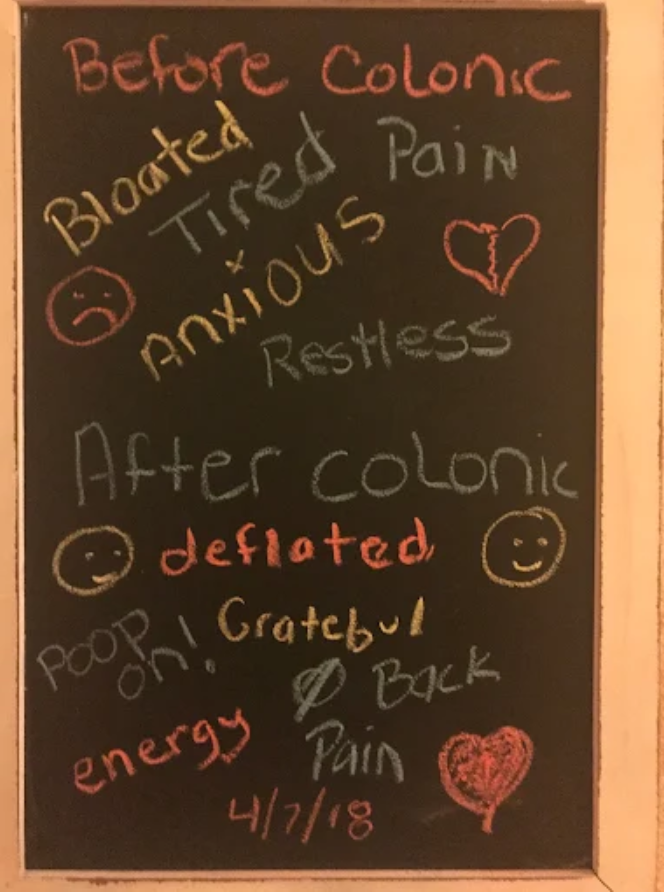 Before Colonic
Bloated
Tired
Pain
Anxious
Restless
After Colonic
deflated
Grateful
Poop
on!
Ø Back
Pain
energy
4/7/18